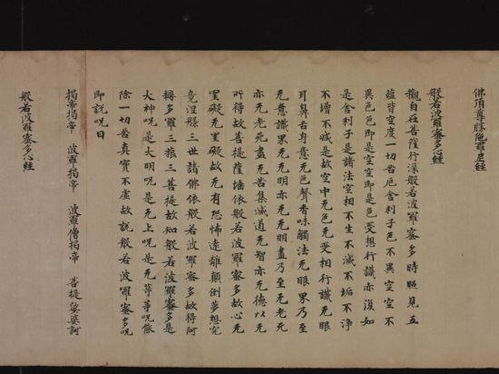 佛頂尊勝陁羅尼經
般若波羅蜜多經
觀自在菩薩行深般若波羅蜜多時照見五
蘊皆空度一切苦厄舍利子色不異空空不
異色色即是空空即是色受想行識亦復如
是舍利子是諸法空相不生不滅不垢不淨
不增不減是故空中无色无受相行識无眼
耳鼻舌身意无色聲香味觸法无眼界乃至
无意識界无无明无无明盡乃至无老死
亦无老死盡无苦集滅道无智亦无德以无
所得故菩提薩埵依般若波羅蜜多故心无
罣礙无罣礙故无有恐怖遠離顛倒夢想究
竟涅槃三世諸佛依般若波羅蜜多故得阿
耨多羅三藐三菩提故知般若波羅蜜多是
大神呪是大明呪是无上呪是无等等呪能
除一切苦真實不虛故說般若波羅蜜多呪
即說呪曰
揭帝揭帝 波羅揭帝 波羅僧揭帝 菩提娑婆訶
般若波羅蜜多心經